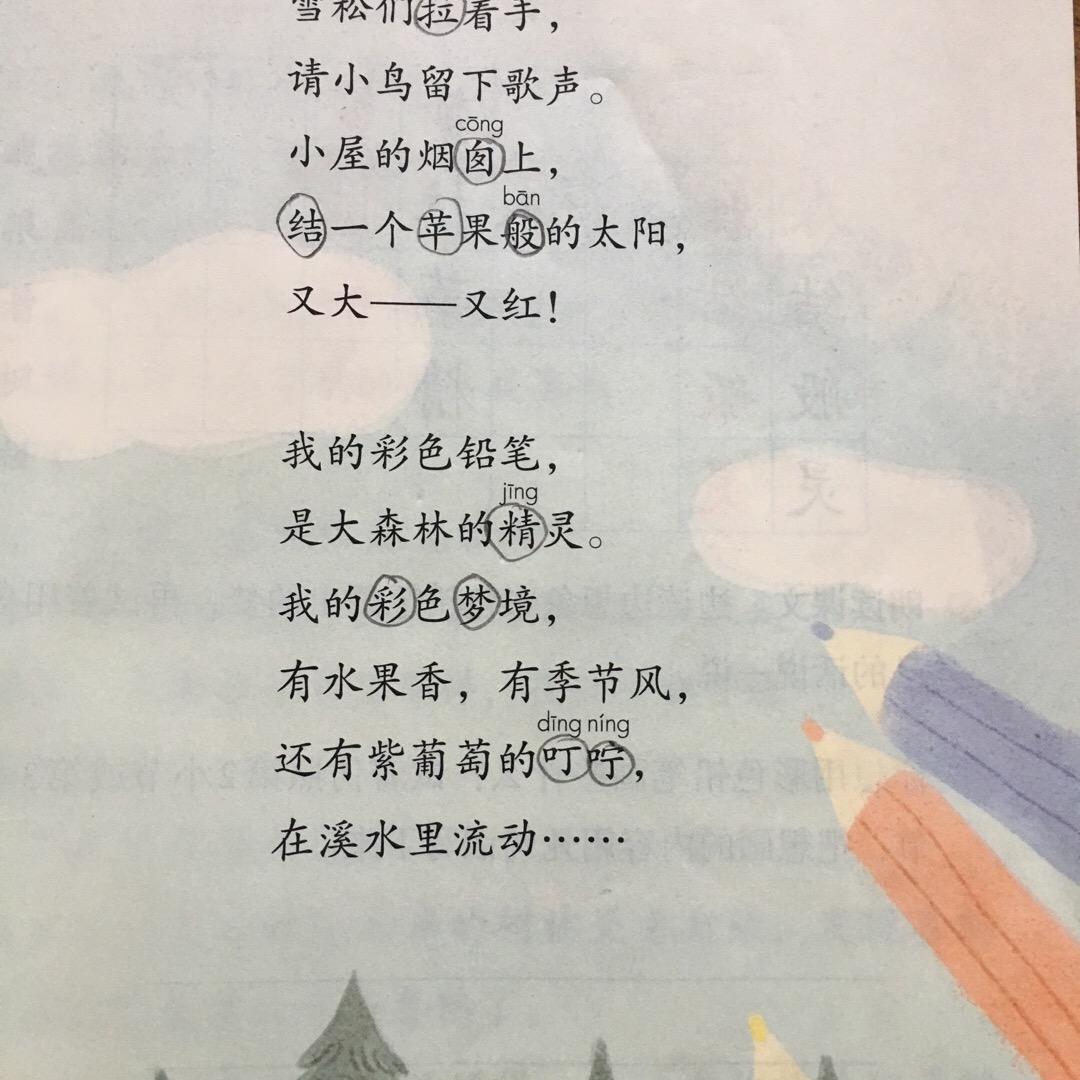 雪松们拉着手，
请小鸟留下歌声。
cōng
小屋的烟囱上，
bān
结一个苹果般的太阳，
又大——又红！
我的彩色铅笔，
jīng
是大森林的精灵。
我的彩色梦境，
有水果香，有季节风，
dīng níng
还有紫葡萄的叮咛，
在溪水里流动……